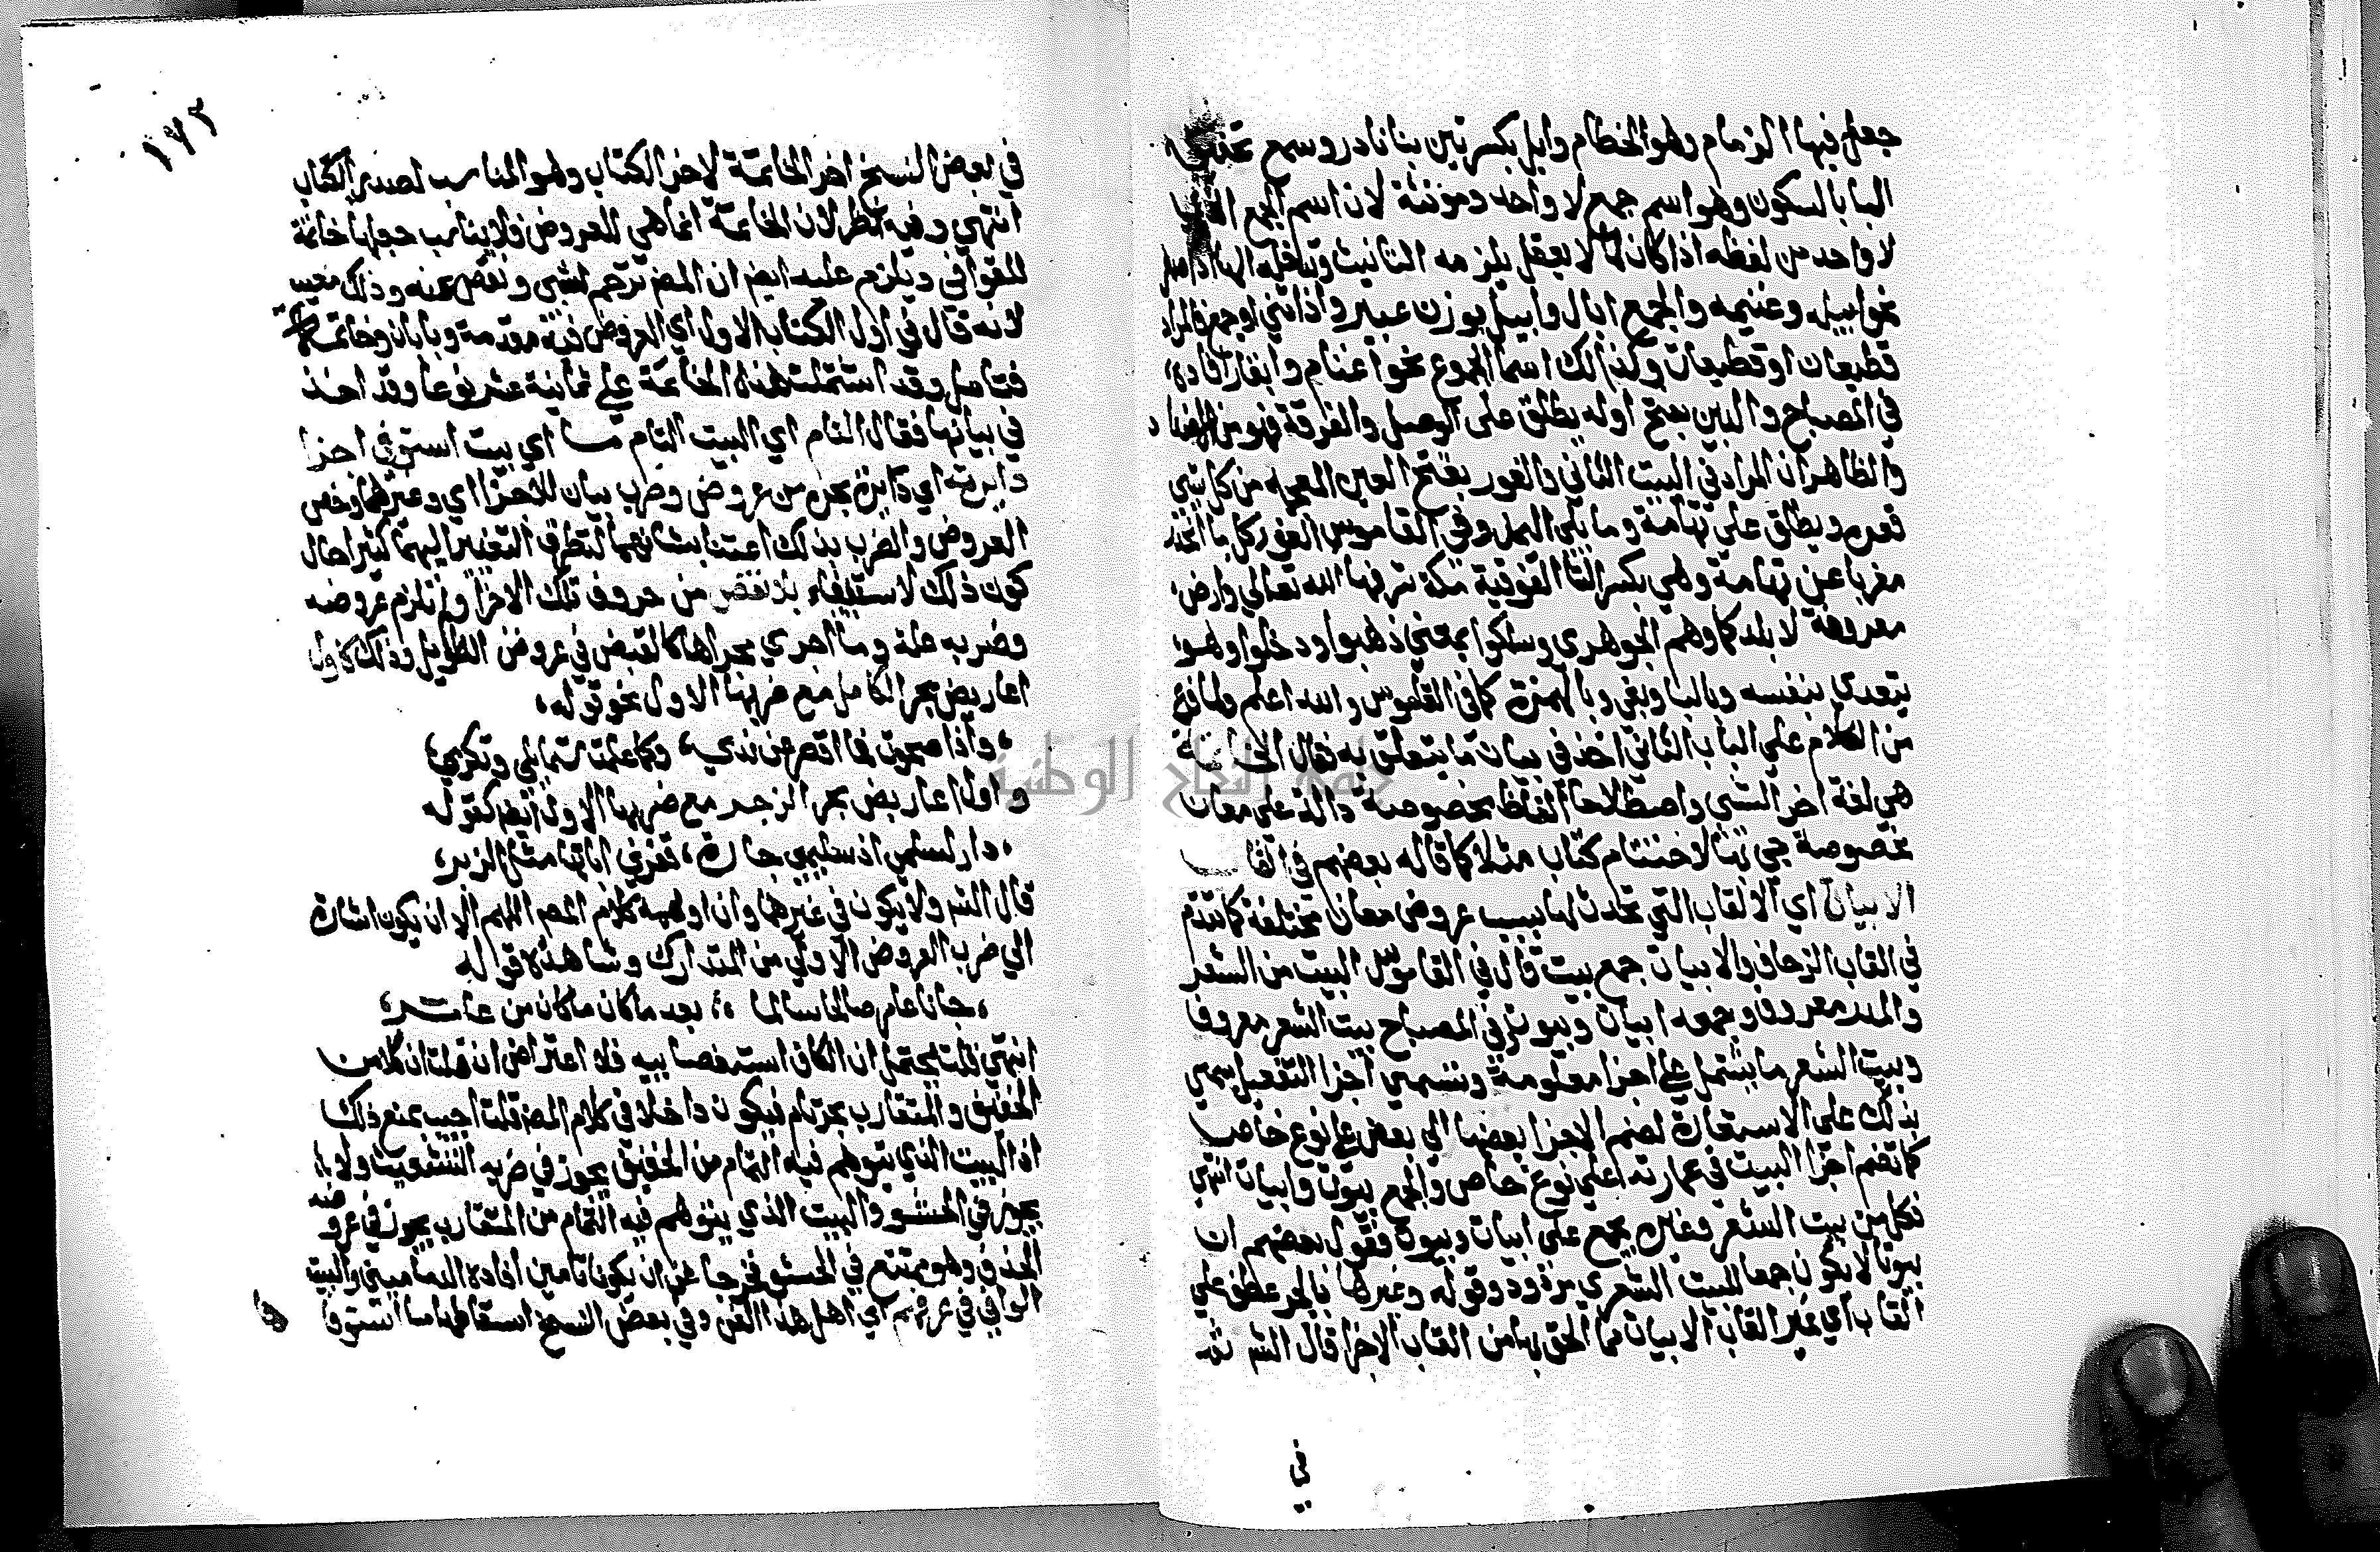 جعل فيها الزمام وهو الخطام وابل بكسرتين بنا نادر وسمع
البا بالسكون وهو اسم جمع لا واحد مؤنثة لان اسم الجمع
لا واحد من لفظه اذا كان لما لا يعقل يلزمه التانيث وتدخله الها اذا صغر
نحو ابيله وغنيمه والجمع ابال وابيل بوزن عبير واذا ثني او جمع فالمراد
قطيعان او قطيعات وكذلك اسما الجموع نحو اغنام وابقار افاده
في المصباح والبين بفتح اوله يطلق على الوصل والفرقة فهو من
والظاهر ان المراد في البيت الثاني والغور بفتح الغين المعجمه من كل شي
قعره ويطلق على تهامة وما يلي اليمن وفي القاموس الغور كل ما انحدر
مغربا عن تهامة وهي بكسر التا الفوقية مكة شرفها الله تعالى وارض
معروفة لا بلد كما وهم الجوهري وسلكوا بمعنى ذهبوا ودخلوا وهو
يتعدى بنفسه وبالبا وبفي وبالهمزة كما في القاموس والله اعلم ولما فرغ
من الكلام على الباب الثاني اخذ في بيان ما يتعلق به فقال الخاتمة
هي لغة اخر الشي واصطلاحا الفاظ مخصوصة دالة على معان
مخصوصة جي بها لاختتام كتاب مثلا كما قاله بعضهم في القاب
الابيات اي الالقاب التي تحدث لها بسبب عروض معان مختلفة كما تقدم
في القاب الزحاف والابيات جمع بيت قال في القاموس البيت من الشعر
والمدر معروف وجمعه ابيات وبيوت وفي المصباح بيت الشعر معروف
وبيت الشعر ما يشتمل على اجزا معلومة وتسمى اجزا التفعيل سمي
بذلك على الاستعارة لضم الاجزا بعضها الى بعض على نوع خاص
كما تضم اجزا البيت في عمارته على نوع خاص والجمع بيوت وابيات انتهى
فكل من بيت الشعر وغيره يجمع على ابيات وبيوت فقول بعضهم ان
بيوتا لا يكون جمعا للبيت الشعري مردود وقوله وغيرها بالجر عطف على
القاب اي غير القاب الابيات مما الحق بها من القاب الاجزا قال الش
في
١٧٢
في بعض النسخ اخر الخاتمة لاخر الكتاب وهو المناسب لصدر الكتاب
انتهى وفيه نظر لان الخاتمة انما هي للعروض فلا يناسب جعلها خاتمة
للقوافي ويلزم عليه ايض ان المص ترجم لشي ونقص عنه وذلك معيب
لانه قال في اول الكتاب الاول اي العروض فيه مقدمة وبابان وخاتمة
فتامل وقد اشتملت هذه الخاتمة على ثمانية عشر نوعا وقد اخذ
في بيانها فقال التام اي البيت التام ما اي بيت استوفى اجزا
دايرته اي دايرة بحره من عروض وضرب بيان للاجزا اي وغيرهما وخص
العروض والضرب بذلك اعتنا بشانهما لتطرق التغيير اليهما كثيرا حال
كون ذلك الاستيفاء بلا نقص من حروف تلك الاجزا ولم تلزم عروضه
وضربه علة وما اجري مجراها كالقبض في عروض الطويل وذلك كاول
اعاريض بحر الكامل مع ضربها الاول نحو قوله،
، واذا صحوت فما اقصر عن ندي ، وكما علمت شمايلي وتكرمي ،
واول اعاريض بحر الرجز مع ضربها الاول ايضا كقوله
، دار لسلمى اذ سليمى جارة ، قفر ترى اياتها مثل الزبر ،
قال الش ولا يكون في غيرهما وان اوهمه كلام المص اللهم الا ان يكون اشارة
الى ضرب العروض الاولى من المتدارك وشاهده قوله
، جانا عامر صالحا سالما ،، بعد ما كان ما كان من عامر ،
انتهى قلت يحتمل ان الكاف استقصايية فلا اعتراض ان قلت ان كلا من
الخفيف والمتقارب بحر تام فيكون داخلا في كلام المص قلت اجيب بمنع ذلك
اذ البيت الذي يتوهم فيه التمام من الخفيف يجوز في ضربه التشعيث ولا
يجوز في الحشو والبيت الذي يتوهم فيه التمام من المتقارب يجوز في عروضه
الحذف وهو ممتنع في الحشو فخرجا عن ان يكونا تامين افاده الدماميني والبيت
الوافي في عرفهم اي اهل هذا الفن وفي بعض النسخ اسقاطها ما استوفا
جامعة النجاح الوطنية